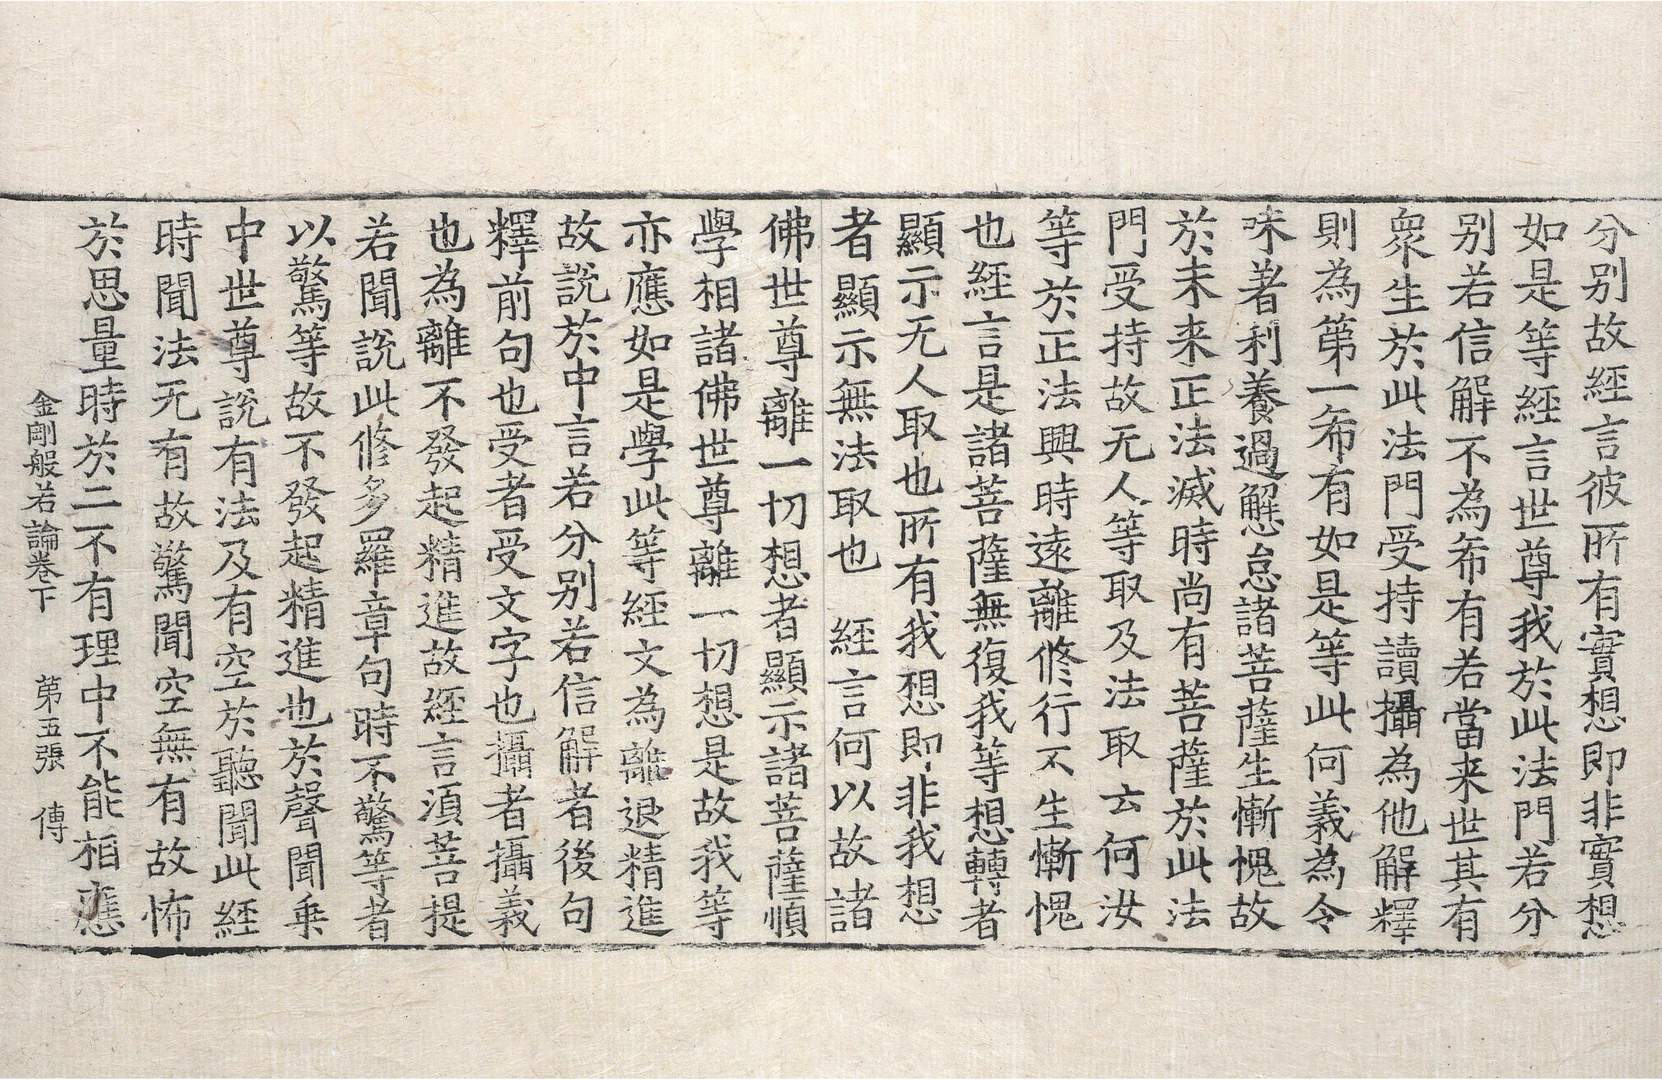 分别故經言彼所有實想即非實想
如是等經言世尊我於此法門若分
别若信解不為希有若當来世其有
衆生於此法門受持讀攝為他解釋
則為第一希有如是等此何義為令
味著利養過懈怠諸菩薩生慚愧故
於未来正法滅時尚有菩薩於此法
門受持故无人等取及法取云何汝
等於正法興時遠離修行不生慚愧
也經言是諸菩薩無復我等想轉者
顯示无人取也所有我想即非我想
者顯示無法取也　經言何以故諸
佛世尊離一切想者顯示諸菩薩順
學相諸佛世尊離一切想是故我等
亦應如是學此等經文為離退精進
故說於中言若分别若信解者後句
釋前句也受者受文字也攝者攝義
也為離不發起精進故經言湏菩提
若聞說此修多羅章句時不驚等者
以驚等故不發起精進也於聲聞乗
中世尊說有法及有空於聽聞此經
時聞法无有故驚聞空無有故怖
於思量時於二不有理中不能相應
金剛般若論卷下　第五張　傳